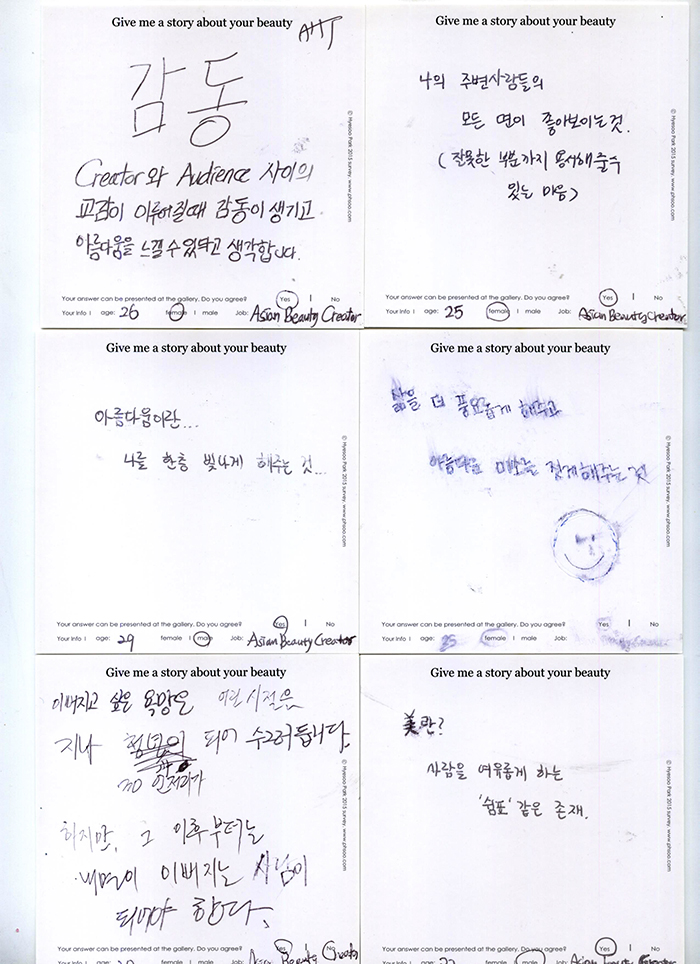 Give me a story about your beauty
감동
Creator와 Audience 사이의
교감이 이루어질때 감동이 생기고
아름다움을 느낄 수 있다고 생각합니다.
© Hyesoo Park 2015 survey. www.phsoo.com
Your answer can be presented at the gallery. Do you agree? Yes I No
Your Info I age: 26 female I male Job: Asian Beauty Creator
Give me a story about your beauty
나의 주변사람들의
모든 면이 좋아보이는것.
(잘못한 부분까지 용서해줄수
있는 마음)
© Hyesoo Park 2015 survey. www.phsoo.com
Your answer can be presented at the gallery. Do you agree? Yes I No
Your Info I age: 25 female I male Job: Asian Beauty Creator
Give me a story about your beauty
아름다움이란...
나를 한층 빛나게 해주는 것...
© Hyesoo Park 2015 survey. www.phsoo.com
Your answer can be presented at the gallery. Do you agree? Yes I No
Your Info I age: 29 female I male Job: Asian Beauty Creator
Give me a story about your beauty
삶을 더 풍요롭게 해주고
아름다운 미소를 짓게해주는 것
© Hyesoo Park 2015 survey. www.phsoo.com
Your answer can be presented at the gallery. Do you agree? Yes I No
Your Info I age: 25 female I male Job:
Give me a story about your beauty
이뻐지고 싶은 욕망은 어린 시절을
지나 되어 수그러듭니다.
30 언저리가
하지만, 그 이후부터는
내면이 이뻐지는 사람이
되어야 한다.
© Hyesoo Park 2015 survey. www.phsoo.com
Your answer can be presented at the gallery. Do you agree? Yes I No
Your Info I age: female I male Job: Asian Beauty Creator
Give me a story about your beauty
美란?
사람을 여유롭게 하는
'쉼표' 같은 존재.
© Hyesoo Park 2015 survey. www.phsoo.com
Your answer can be presented at the gallery. Do you agree? Yes I No
Your Info I age: female I male Job: Asian Beauty Creator